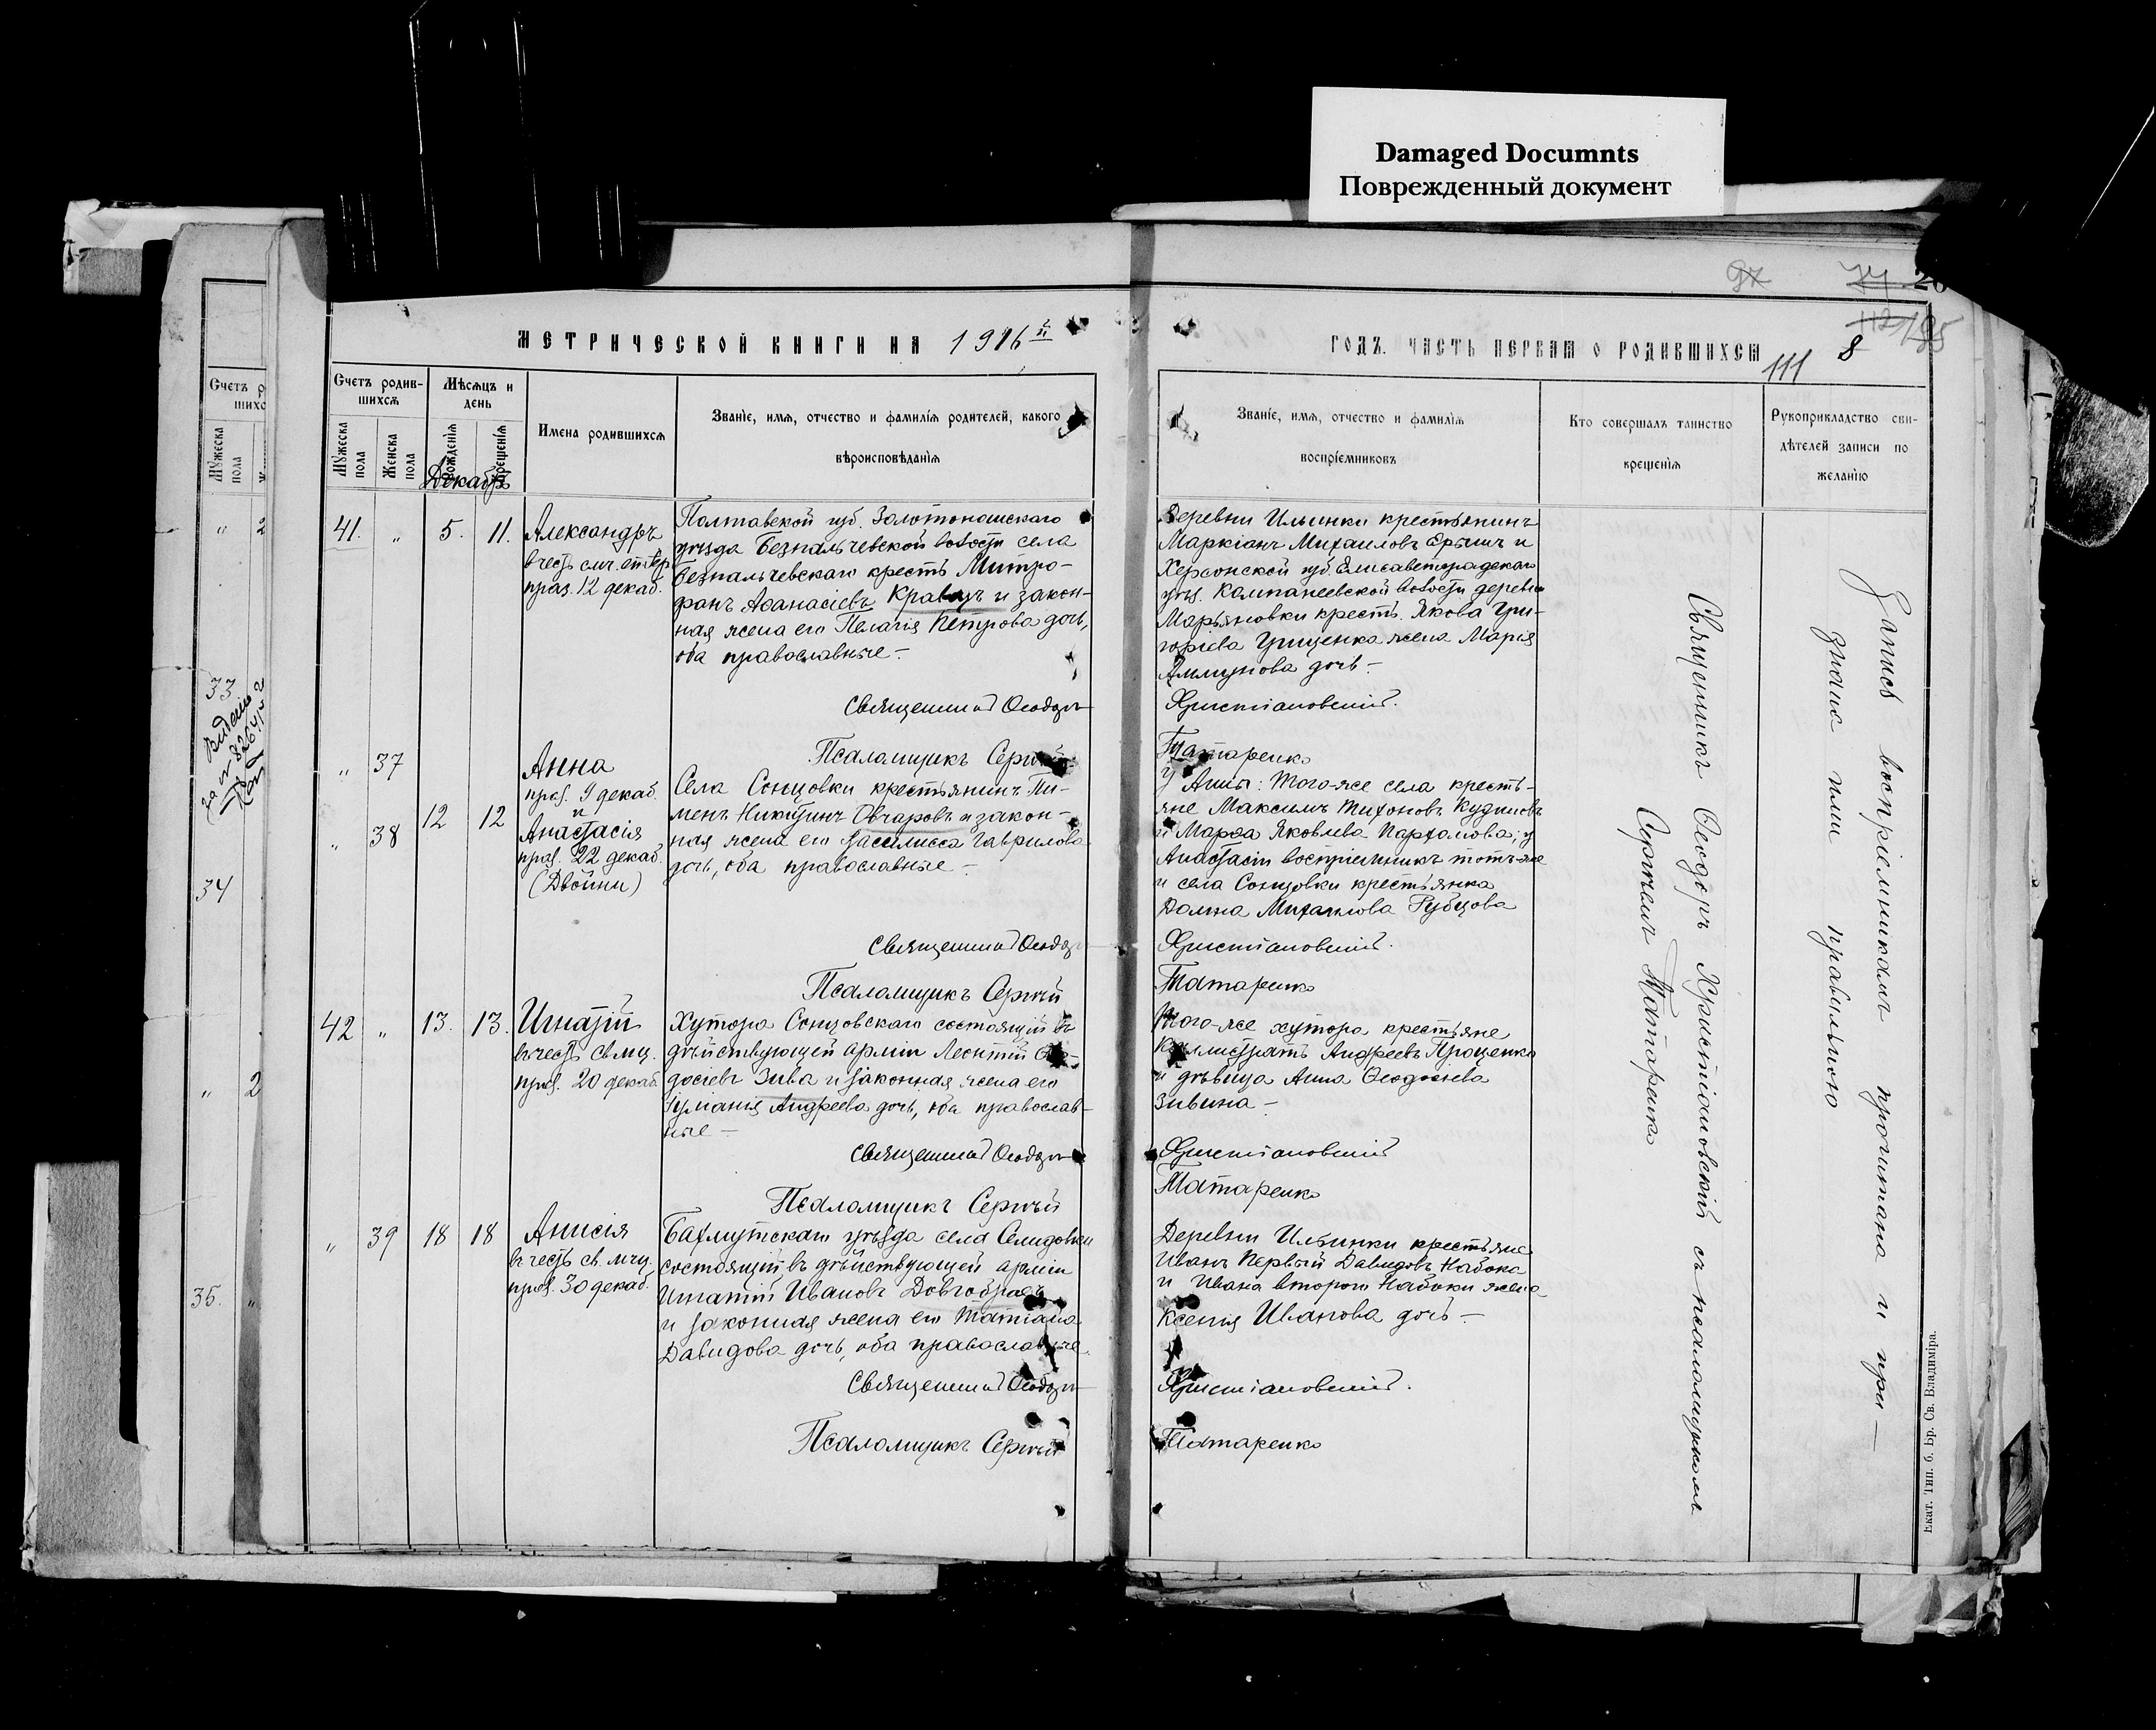 Damaged Documnts
Поврежденный документ
МЕТРИЧЕСКОЙ КНИГИ НА 1916й
ГОДЪ. ЧАСТЬ ПЕРВАЯ О РОДИВШИХСЯ
111 8
Счетъ родив-
шихся
Мужеска
пола
Женска
пола
Мѣсяцъ и
день
рожденія
крещенія
Имена родившихся
Званіе, имя, отчество и фамилія родителей, какого
вѣроисповѣданія
Званіе, имя, отчество и фамилія
воспріемниковъ
Кто совершалъ таинство
крещенія
Рукоприкладство сви-
дѣтелей записи по
желанію
Декабрь
41. " 5. 11. Александръ
праз. 12 декаб.
Полтавской губ. Золотоношскаго
уѣзда Безпальчевской волости села
Безпальчевскаго крестъ. Митро-
фанъ Аѳанасіевъ Кравецъ и закон-
ная жена его Пелагія Петрова дочь,
оба православные —
Деревни Ильинки крестьянинъ
Маркіанъ Михаиловъ и
Херсонской губ. Елисаветградскаго
уѣз. Компанеевской волости деревни
Марьяновки крестъ. Якова Гри-
горіева Грищенка жена Марія
дочь —
Священникъ Ѳеодоръ
Христіановскій.
Псаломщикъ Сергій
Татаренко
" 37
" 38
12 12
Анна
праз. 9 декаб.
и
Анастасія
праз. 22 декаб.
(Двойни)
Села Сонцовки крестьянинъ Пи-
менъ Никитинъ Овчаровъ и закон-
ная жена его Василисса Гаврилова
дочь, оба православные —
у Анны: того-же села кресть-
яне Максимъ Тихоновъ
и Марѳа Яковлева Пархомова; у
Анастасіи воспріемникъ тотъ-же
и села Сонцовки крестьянка
Домна Михаилова Рубцова
Священникъ Ѳеодоръ
Христіановскій.
Псаломщикъ Сергѣй
Татаренко
42 " 13. 13. Игнатій
въ честь св. мч.
праз. 20 декаб.
Хутора Сонцовскаго состоящій въ
дѣйствующей арміи Леонтій Ѳео-
досіевъ Зива и законная жена его
Іуліанія Андреева дочь, оба православ-
ные —
Того-же хутора крестьяне
Каллистратъ Андреевъ Проценко
и дѣвица Анна Ѳеодосіева
Зивина —
Священникъ Ѳеодоръ
Христіановскій
Псаломщикъ Сергѣй
Татаренко
" 39 18 18 Анисія
въ честь св. мчц.
праз. 30 декаб.
Бахмутскаго уѣзда села Селидовки
состоящій въ дѣйствующей арміи
Игнатій Ивановъ
и законная жена его Татіана
Давидова дочь, оба православные.
Деревни Ильинки крестьяне
Иванъ Первый Давидовъ Набока
и Ивана второго Набоки жена
Ксенія Иванова дочь —
Священникъ Ѳеодоръ
Христіановскій.
Псаломщикъ Сергѣй
Татаренко
Священникъ Ѳеодоръ Христіановскій съ псаломщикомъ
Сергѣемъ Татаренко
Запись воспріемникамъ прочитана и при-
знана ими правильною
Екат. Тип. б. Бр. Св. Владиміра.
Счетъ р
шихс
Мужеска
пола
" 2
33
34
" 2
35. "